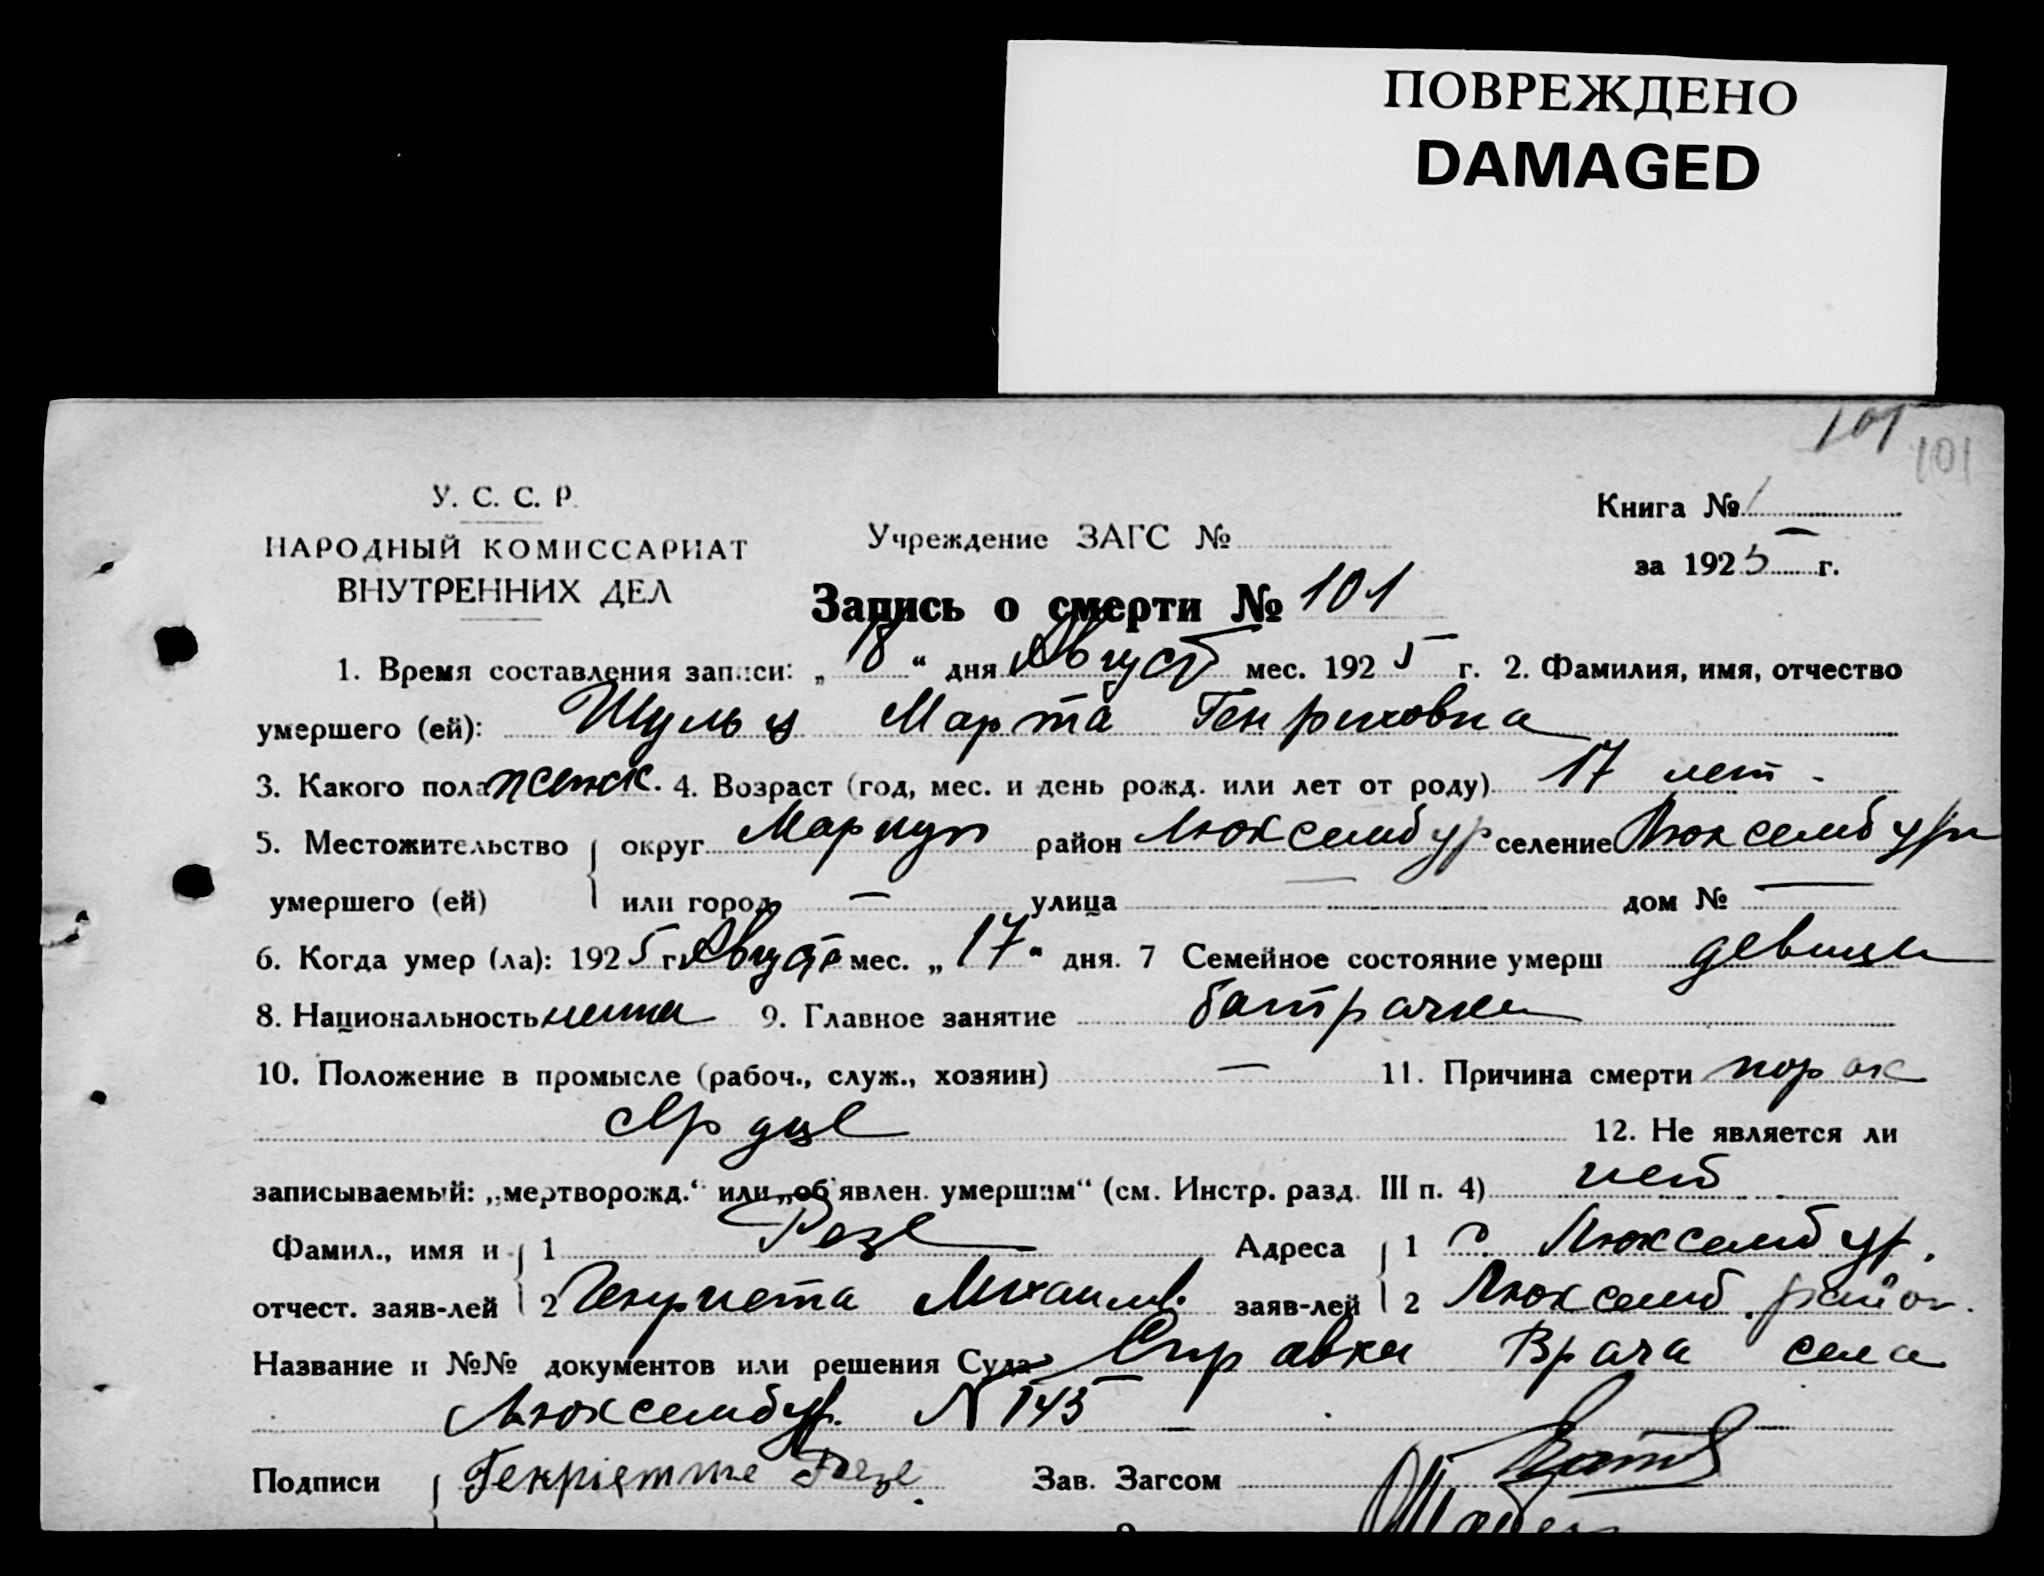 ПОВРЕЖДЕНО
DAMAGED
101
101
У. С. С. Р.
НАРОДНЫЙ КОМИССАРИАТ
ВНУТРЕННИХ ДЕЛ
Учреждение ЗАГС №
Книга № 1
за 1925 г.
Запись о смерти № 101
1. Время составления записи: „18“ дня Август мес. 1925 г. 2. Фамилия, имя, отчество
умершего (ей): Шульц Марта Генриховна
3. Какого пола женск. 4. Возраст (год, мес. и день рожд. или лет от роду) 17 лет -
5. Местожительство округ Мариуп район Люксембур селение Люксембург
умершего (ей) или город — улица — дом № —
6. Когда умер (ла): 1925 г. Август мес. „17“ дня. 7 Семейное состояние умерш девица
8. Национальность немка 9. Главное занятие батрачка
10. Положение в промысле (рабоч., служ., хозяин) — 11. Причина смерти порок
сердце 12. Не является ли
записываемый: „мертворожд.“ или „об'явлен. умершим“ (см. Инстр. разд. III п. 4) нет
Фамил., имя и 1 Резе Адреса 1 с. Люксембур.
отчест. заяв-лей 2 Генриета Михаилов. заяв-лей 2 Люксемб. район.
Название и №№ документов или решения Суда Справка Врача села
Люксембур. N 145 —
Подписи Зав. Загсом